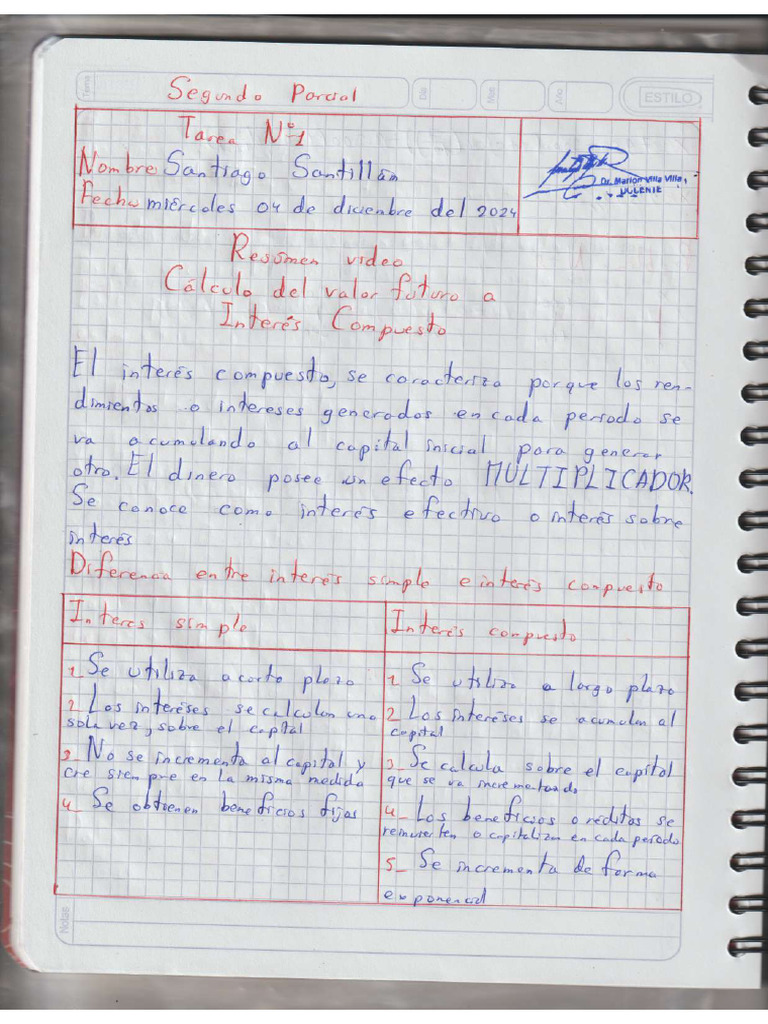 Tema
Segundo Parcial
Día
Mes
Año
ESTILO
Tarea N°1
Nombre: Santiago Santillán
Dr. Marlon Villa Villa
DOCENTE
Fecha miércoles 04 de diciembre del 2024
Resúmen video
Cálculo del valor futuro a
Interés Compuesto
El interés compuesto, se caracteriza porque los ren-
dimientos o intereses generados en cada periodo se
va acumulando al capital inicial para generar
otro. El dinero posee un efecto MULTIPLICADOR.
Se conoce como interés efectivo o interés sobre
interés
Diferencia entre interés simple e interés conpuesto
Interes simple
Interés conpuesto
1_ Se utiliza a corto plazo
2_ Los intéreses se calculan una
sola vez, sobre el capital
3_ No se incrementa al capital y
cre siempre en la misma medida
4_ Se obtienen beneficios fijos
1_ Se utiliza a largo plazo
2_ Los intereses se acumulan al
capital
3_ Se calcula sobre el capital
que se va incrementando
4_ Los beneficios o réditos se
reinvierten o capitalizan en cada período
5_ Se incrementa de forma
exponencial
Notas